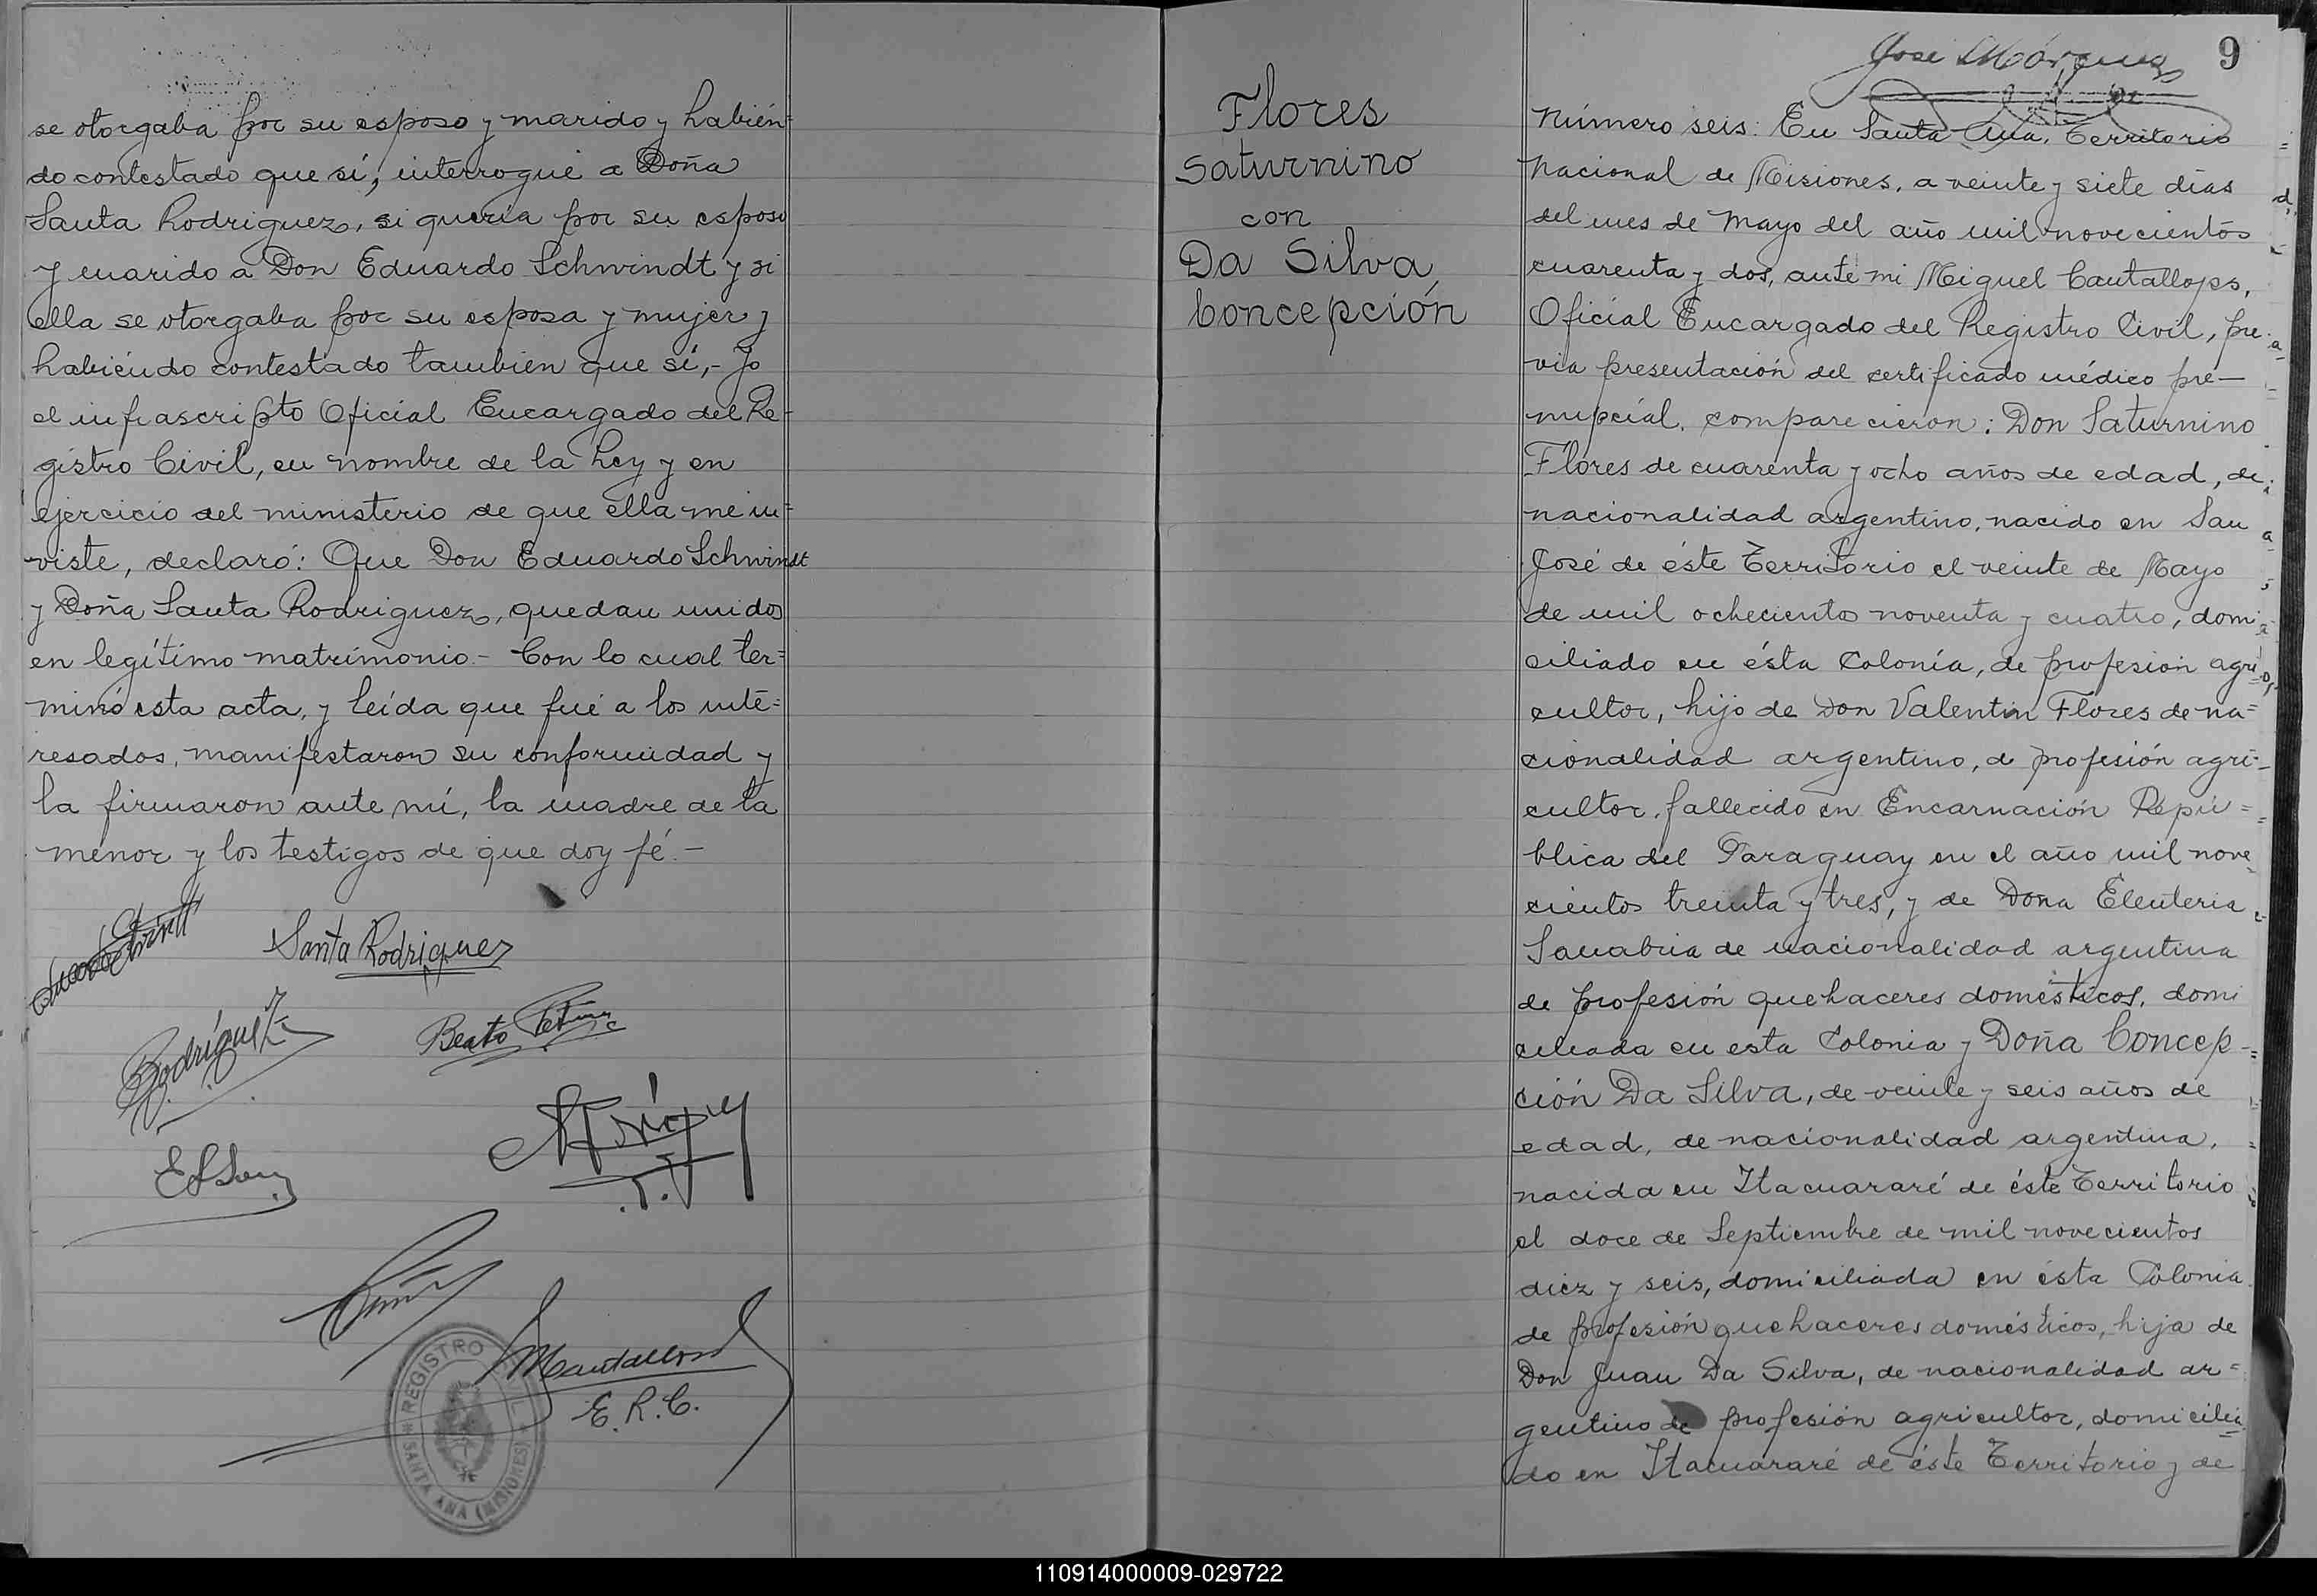 se otorgaba por su esposo y marido y habién=
do contestado que sí, interrogué a Doña
Santa Rodriguez, si quería por su esposo
y marido a Don Eduardo Schwindt y si
ella se otorgaba por su esposa y mujer y
habiéndo contestado tambien que sí,- yo
el infrascripto Oficial Encargado del Re-
gistro Civil, en nombre de la Ley y en
ejercicio del ministerio de que ella me in=
viste, declaró: Que Don Eduardo Schwindt
y Doña Santa Rodriguez, quedan unidos
en legítimo matrimonio.- Con lo cual ter=
minó esta acta, y leída que fué a los inte=
resados, manifestaron su conformidad y
la firmaron ante mí, la madre de la
menor y los testigos de que doy fé.-
Santa Rodriguez
Rodríguez
Beato
Mcantallops
E.R.C.
REGISTRO CIVIL
SANTA ANA (MISIONES)
Flores
Saturnino
con
Da Silva
Concepción
José Márquez
9
Número seis: En Santa Ana, Territorio
Nacional de Misiones, a veinte y siete días
del mes de Mayo del año mil novecientos
cuarenta y dos, ante mi Miguel Cantallops,
Oficial Encargado del Registro Civil, pre-
via presentación del certificado médico pre-
nupcial, comparecieron: Don Saturnino
Flores de cuarenta y ocho años de edad, de
nacionalidad argentino, nacido en San
José de éste Territorio el veinte de Mayo
de mil ochecientos noventa y cuatro, domi
ciliado en ésta Colonia, de profesion agri
cultor, hijo de Don Valentin Flores de na=
cionalidad argentino, de profesión agri-
cultor, fallecido en Encarnación Repú=
blica del Paraguay en el año mil nove
cientos treinta y tres, y de Doña Eleuteria
Sanabria de nacionalidad argentina
de profesión quehaceres domésticos, domi
ciliada en esta Colonia y Doña Concep-
ción Da Silva, de veinte y seis años de
edad, de nacionalidad argentina,
nacida en Itacuararé de éste Territorio
el doce de Septiembre de mil novecientos
diez y seis, domiciliada en ésta Colonia
de profesión quehaceres domésticos, hija de
Don Juan Da Silva, de nacionalidad ar=
gentino de profesión agricultor, domicilia
do en Itacuararé de éste Territorio y de
110914000009-029722